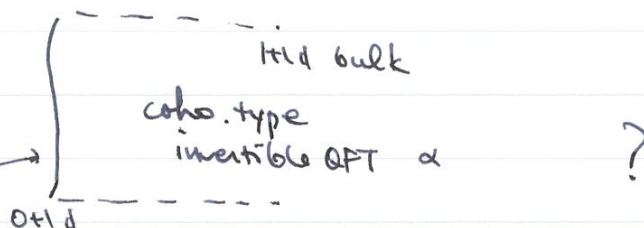 1+1d bulk
coho. type
invertible QFT α
?
0+1d